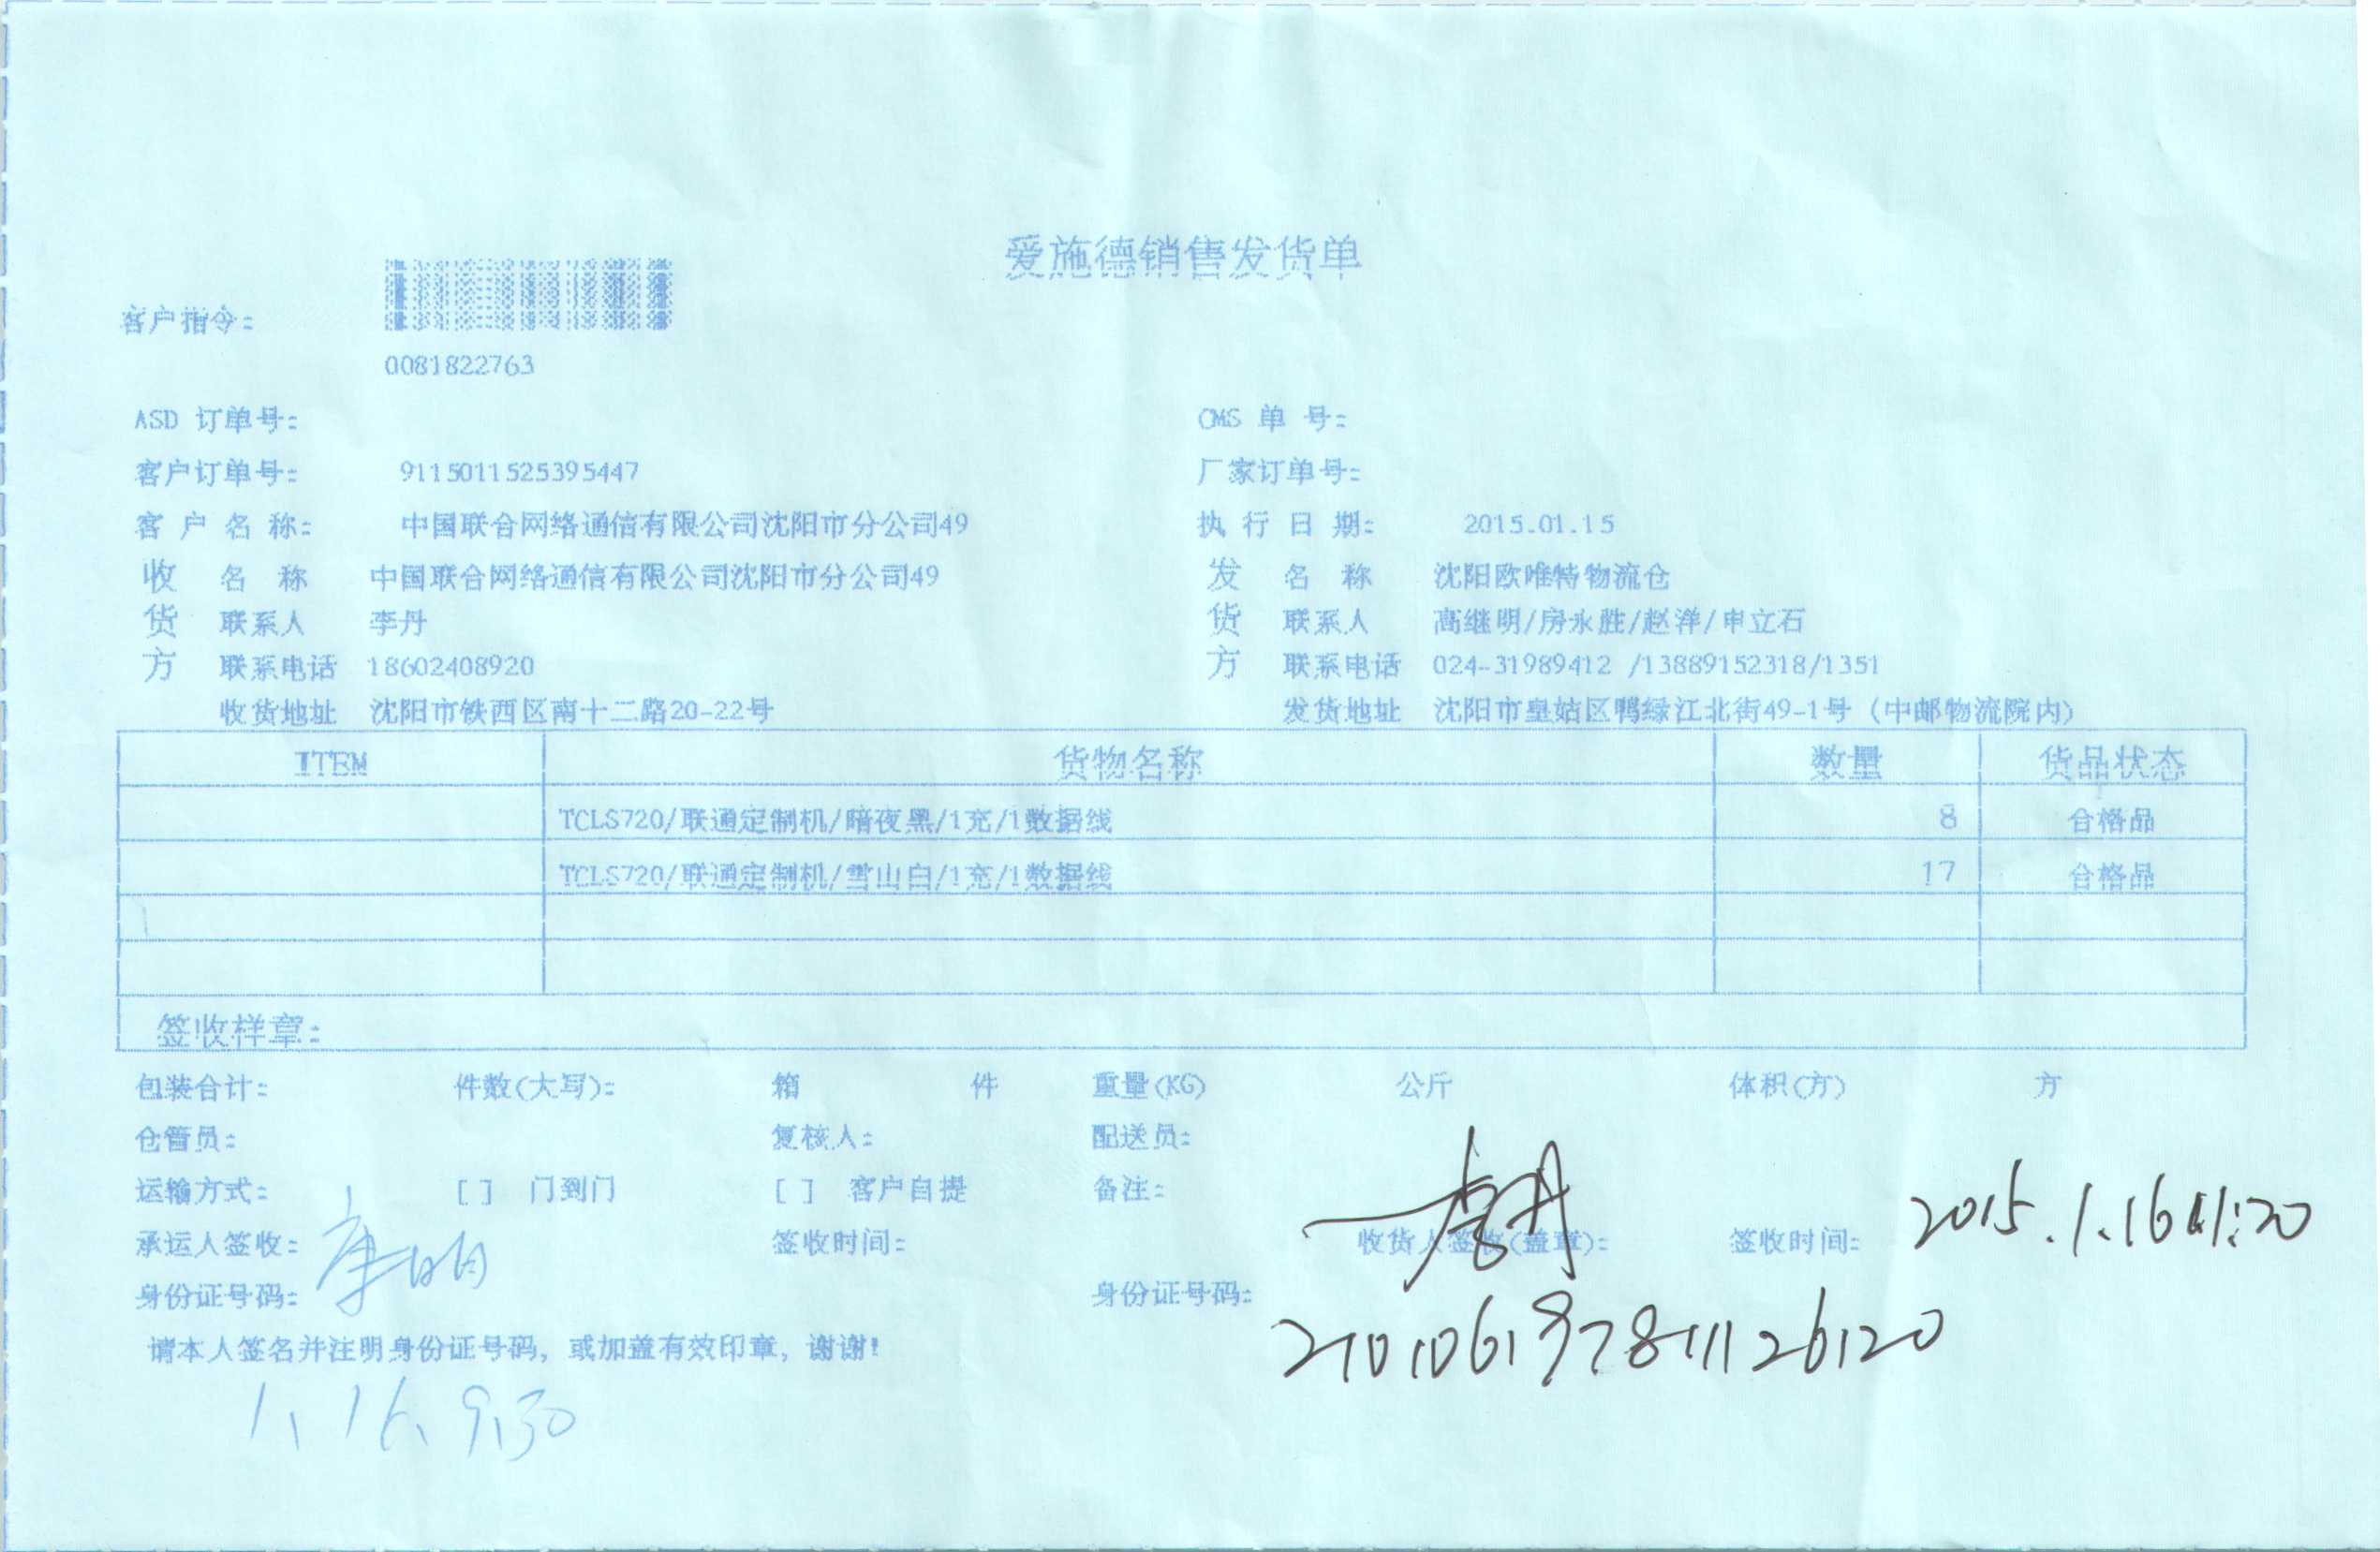 爱施德销售发货单
客户指令:
0081822763
ASD 订单号: CMS 单 号:
客户订单号: 9115011525395447 厂家订单号:
客 户 名 称: 中国联合网络通信有限公司沈阳市分公司49 执 行 日 期: 2015.01.15
收 名 称 中国联合网络通信有限公司沈阳市分公司49 发 名 称 沈阳欧唯特物流仓
货 联系人 李丹 货 联系人 高继明/房永胜/赵洋/申立石
方 联系电话 18602408920 方 联系电话 024-31989412 /13889152318/1351
收货地址 沈阳市铁西区南十二路20-22号 发货地址 沈阳市皇姑区鸭绿江北街49-1号 (中邮物流院内)
ITEM 货物名称 数量 货品状态
TCLS720/联通定制机/暗夜黑/1充/1数据线 8 合格品
TCLS720/联通定制机/雪山白/1充/1数据线 17 合格品
签收样章:
包装合计: 件数(大写): 箱 件 重量(KG) 公斤 体积(方) 方
仓管员: 复核人: 配送员:
运输方式: [ ] 门到门 [ ] 客户自提 备注:
承运人签收: 签收时间: 收货人签收(盖章): 李丹 签收时间: 2015.1.16 11:20
身份证号码: 身份证号码: 210106197811126120
请本人签名并注明身份证号码, 或加盖有效印章, 谢谢!
1、16、9:30